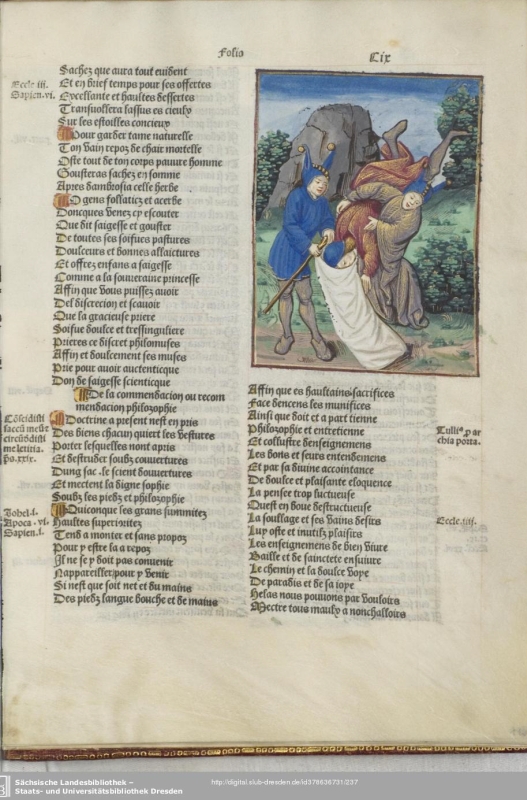 Folio
Clix
Sachez que aura tout euident
Et en brief temps pour ses offertes
Excellante et haultes dessertes
Transuollera lassus es cieulx
Sur les estoilles concieux
Pour garder lame naturelle
Ton vain repoz de chair mortelle
Oste tout de ton corps pauure homme
Gousteras sachez en somme
Apres dambrosia celle herbe
O gens follatiz et acerbe
Doncques venez cy escouter
Que dit saigesse et gouster
De toutes ses soifues pastures
Doulceurs et bonnes allaictures
Et offrez enfans a saigesse
Comme a la souueraine princesse
Affin que vous puissez auoir
Del discrecion et scauoir
Que la gracieuse priere
Soifue doulce et tressinguliere
Prieres ce discret philomuses
Affin et doulcement ses muses
Prie pour auoir auctenticque
Don de saigesse scienticque
De la commendacion ou recom
mendacion philozophie
Doctrine a present nest en pris
Des biens chacun quiert les vestures
Porter lesquelles nont apris
Et destruder soubz couuertures
Dung sac le scient douuertures
Et mectent la digne sophie
Soubz les piedz et philozophie
Quiconque les grans summitez
Haultes superioritez
Tend a monter et sans propoz
Pour y estre la a repoz
Il ne se y doit pas conuenir
Nappareiller pour y venir
Si nest que soit net et du mains
Des piedz langue bouche et de mains
Affin que es haultains sacrifices
Face dencens les munifices
Ainsi que doit et a part tienne
Philosophie et entretienne
Et collustre denseignemens
Les bons et seurs entendemens
Et par sa diuine accointance
De doulce et plaisante eloquence
La pensee trop luctueuse
Quest en boue destructueuse
La soullage et ses vains desirs
Luy oste et inutilz plaisirs
Les enseignemens de bien viure
Baille et de sainctete ensuiure
Le chemin et la doulce voye
De paradis et de sa ioye
Helas nous pouuons par vouloirs
Mectre tous maulx a nonchalloirs
Eccle. iii.
Sapien. vi.
Cōscidisti
saccū meū et
circūdedisti
me letitia.
ps. xxix.
Tobel. i.
Apoca. vi.
Sapien. i.
Eccle. iiij.
Sächsische Landesbibliothek –
Staats- und Universitätsbibliothek Dresden
http://digital.slub-dresden.de/id378636731/237